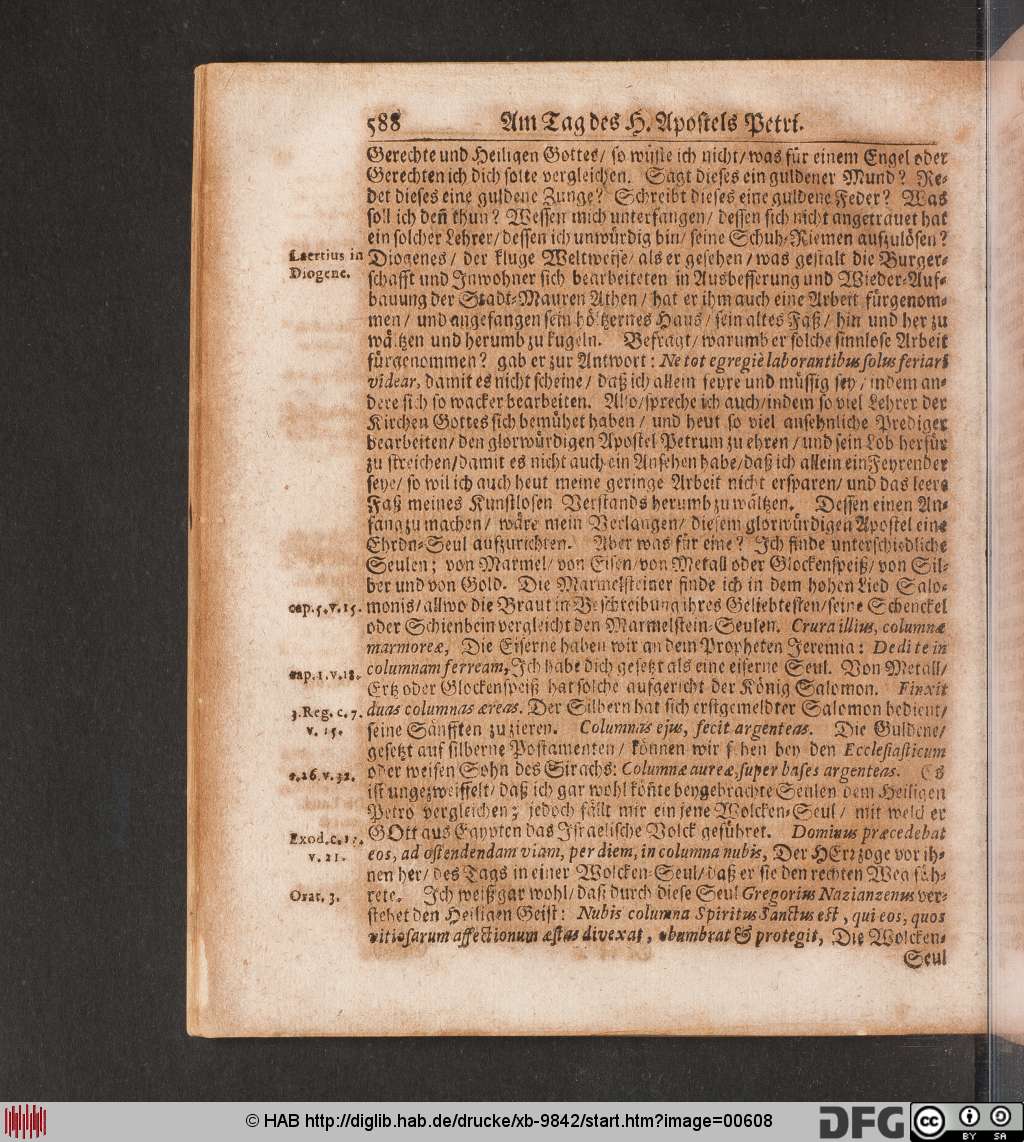 588 Am Tag des H. Apostels Petri.
Gerechte und Heiligen Gottes/ so wüste ich nicht/ was für einem Engel oder
Gerechten ich dich solte vergleichen. Sagt dieses ein guldener Mund? Re-
det dieses eine guldene Zunge? Schreibt dieses eine guldene Feder? Was
soll ich den̄ thun? Wessen mich unterfangen/ dessen sich nicht angetrauet hat
ein solcher Lehrer/ dessen ich unwürdig bin/ seine Schuh-Riemen auszulösen?
Laertius in
Diogene.
Diogenes/ der kluge Weltweise/ als er gesehen/ was gestalt die Burger-
schafft und Inwohner sich bearbeiteten in Ausbesserung und Wieder-Auf-
bauung der Stadt-Mauren Athen/ hat er ihm auch eine Arbeit fürgenom-
men/ und angefangen sein höltzernes Haus/ sein altes Faß/ hin und her zu
wältzen und herumb zu kugeln. Befragt/ warumb er solche sinnlose Arbeit
fürgenommen? gab er zur Antwort: Ne tot egregiè laborantibus solus feriari
videar, damit es nicht scheine/ daß ich allein feyre und müssig sey/ indem an-
dere sich so wacker bearbeiten. Also/ spreche ich auch/ indem so viel Lehrer der
Kirchen Gottes sich bemühet haben/ und heut so viel ansehnliche Prediger
bearbeiten/ den glorwürdigen Apostel Petrum zu ehren/ und sein Lob herfür
zu streichen/ damit es nicht auch ein Ansehen habe/ daß ich allein ein Feyrender
seye/ so wil ich auch heut meine geringe Arbeit nicht ersparen/ und das leere
Faß meines Kunstlosen Verstands herumb zu wältzen. Dessen einen An-
fang zu machen/ wäre mein Verlangen/ diesem glorwürdigen Apostel eine
Ehrn-Seul aufzurichten. Aber was für eine? Ich finde unterschiedliche
Seulen; von Marmel/ von Eisen/ von Metall oder Glockenspeiß/ von Sil-
ber und von Gold. Die Marmelsteiner finde ich in dem hohen Lied Salo-
cap. 5. v. 15.
monis/ allwo die Braut in Beschreibung ihres Geliebtesten/ seine Schenckel
oder Schienbein vergleicht den Marmelstein-Seulen. Crura illius, columnæ
marmoreæ, Die Eiserne haben wir an dem Propheten Jeremia: Dedi te in
cap. 1. v. 18.
columnam ferream, Ich habe dich gesetzt als eine eiserne Seul. Von Metall/
Ertz oder Glockenspeiß hat solche aufgericht der König Salomon. Finxit
3. Reg. c. 7.
v. 15.
duas columnas æreas. Der Silbern hat sich erstgemeldter Salomon bedient/
seine Sänfften zu zieren. Columnas ejus, fecit argenteas. Die Guldene/
gesetzt auf silberne Postamenten/ können wir sehen bey den Ecclesiasticum
c. 26. v. 32.
oder weisen Sohn des Sirachs: Columnæ aureæ, super bases argenteas. Es
ist ungezweiffelt/ daß ich gar wohl kön̄te beygebrachte Seulen dem Heiligen
Petro vergleichen; jedoch fällt mir ein jene Wolcken-Seul/ mit welcher
Exod. c. 13.
v. 21.
GOtt aus Egypten das Israelische Volck geführet. Dominus præcedebat
eos, ad ostendendam viam, per diem, in columna nubis, Der HErr zoge vor ih-
nen her/ des Tags in einer Wolcken-Seul/ daß er sie den rechten Weg füh-
Orat. 3.
rete. Ich weiß gar wohl/ daß durch diese Seul Gregorius Nazianzenus ver-
stehet den Heiligen Geist: Nubis columna Spiritus Sanctus est, qui eos, quos
vitiosarum affectionum æstas divexat, obumbrat & protegit, Die Wolcken-
Seul
© HAB http://diglib.hab.de/drucke/xb-9842/start.htm?image=00608
DFG
cc BY SA